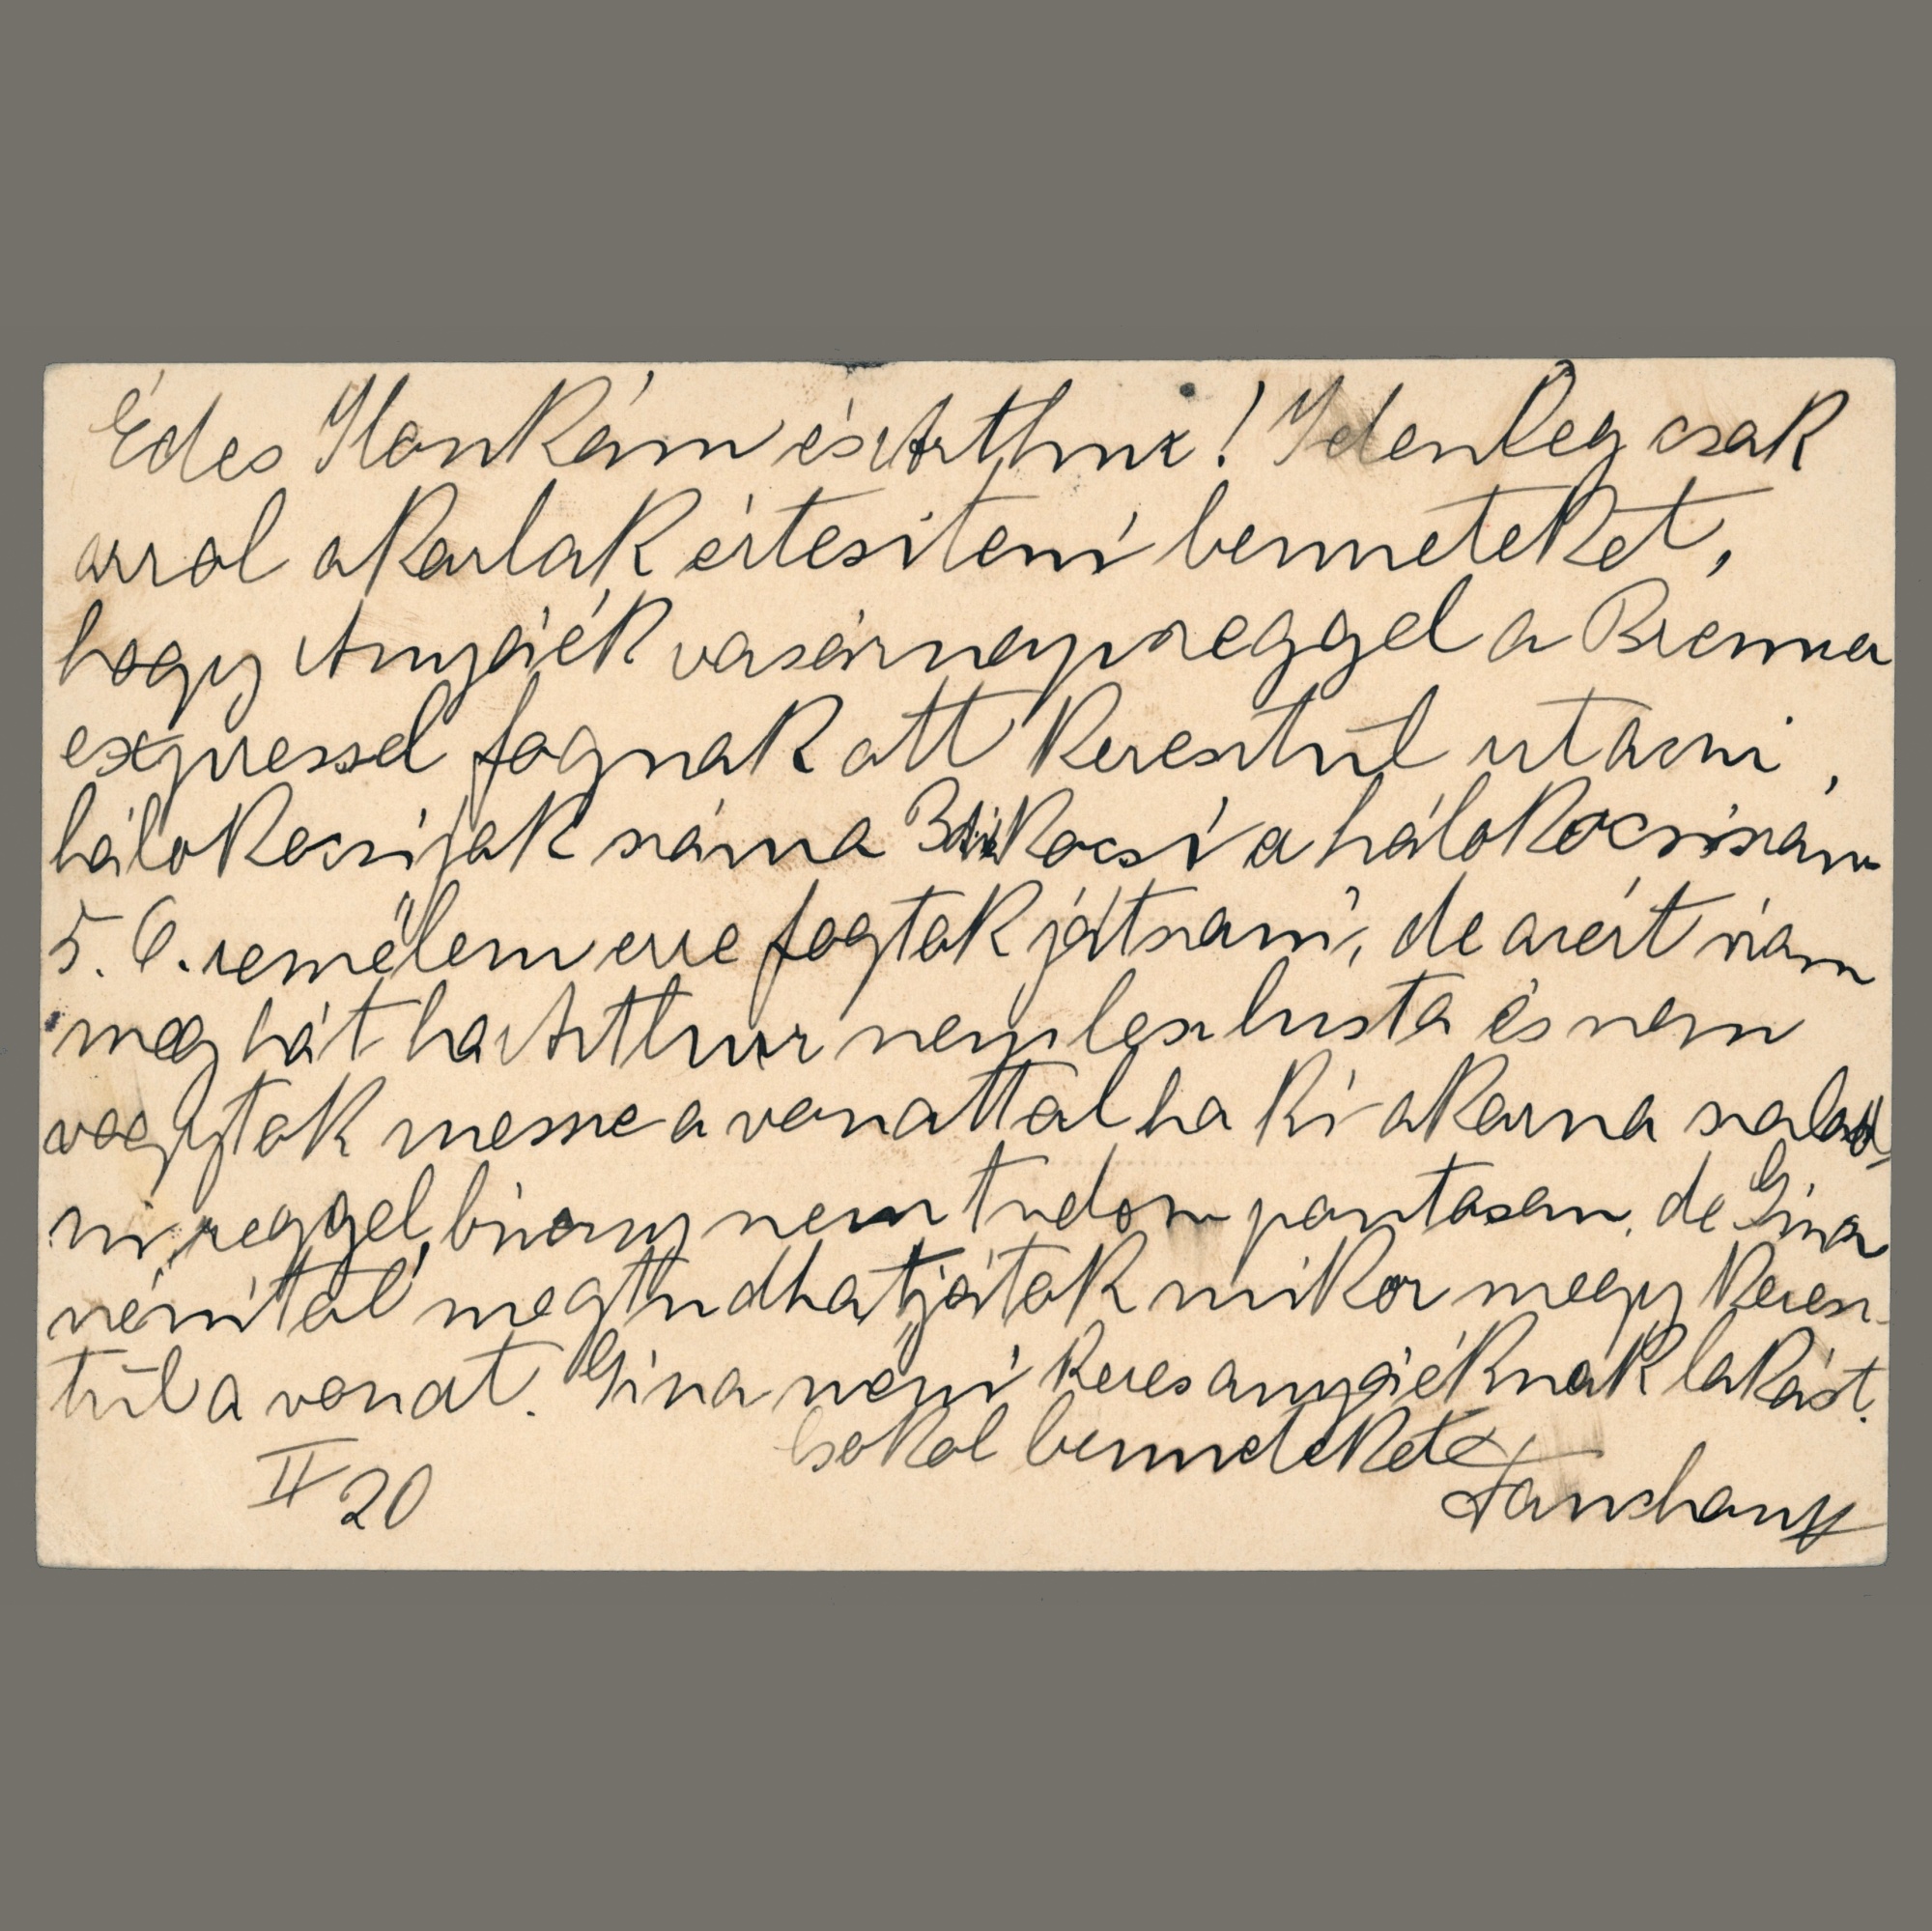 Édes Ilonkám és Arthur! Jelenleg csak
arrol akarlak értesiteni benneteket,
hogy Anyáék vasárnap reggel a Brenna
expressel fognak ott keresztül utazni,
hálokocsijak száma kocsi a hálokocsiszám
5. 6. remélem erre fogtok játszani, de azért
meg hát ha Arthur nem lesz lusta és nem
vagytok messze a vonattal ha ki akarna szalad-
ni, reggel, bizony nem tudom pontosan, de Gina
nénitöl megtudhatjátok mikor megy keresz-
tül a vonat. Gina néni keres anyáéknak lakást.
Csokol benneteket
II 20